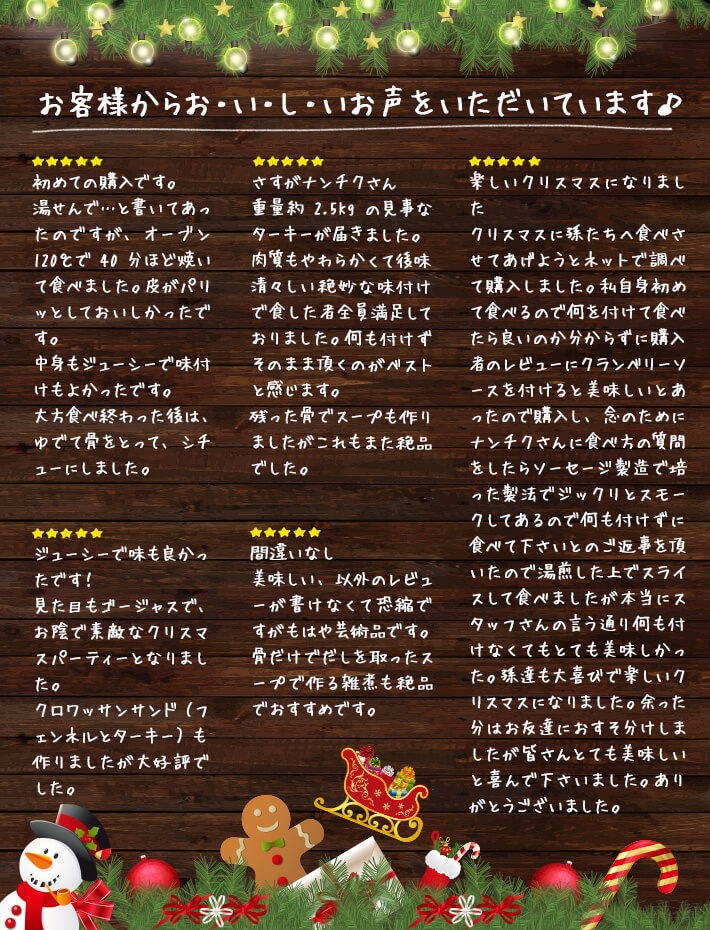 お客様からお・い・し・いお声をいただいています♪
★★★★★
初めての購入です。
湯せんで…と書いてあっ
たのですが、オーブン
120℃で 40 分ほど焼い
て食べました。皮がパリ
ッとしておいしかったで
す。
中身もジューシーで味付
けもよかったです。
大方食べ終わった後は、
ゆでて骨をとって、シチ
ューにしました。
★★★★★
さすがナンチクさん
重量約 2.5kg の見事な
ターキーが届きました。
肉質もやわらかくて後味
清々しい絶妙な味付け
で食した者全員満足して
おりました。何も付けず
そのまま頂くのがベスト
と感じます。
残った骨でスープも作り
ましたがこれもまた絶品
でした。
★★★★★
楽しいクリスマスになりまし
た
クリスマスに孫たちへ食べさ
せてあげようとネットで調べ
て購入しました。私自身初め
て食べるので何を付けて食べ
たら良いのか分からずに購入
者のレビューにクランベリーソ
ースを付けると美味しいとあ
ったので購入し、念のために
ナンチクさんに食べ方の質問
をしたらソーセージ製造で培
った製法でジックリとスモー
クしてあるので何も付けずに
食べて下さいとのご返事を頂
いたので湯煎した上でスライ
スして食べましたが本当にス
タッフさんの言う通り何も付
けなくてもとても美味しかっ
た。孫達も大喜びで楽しいク
リスマスになりました。余った
分はお友達におすそ分けしま
したが皆さんとても美味しい
と喜んで下さいました。あり
がとうございました。
★★★★★
ジューシーで味も良かっ
たです！
見た目もゴージャスで、
お陰で素敵なクリスマ
スパーティーとなりまし
た。
クロワッサンサンド（フ
ェンネルとターキー）も
作りましたが大好評で
した。
★★★★★
間違いなし
美味しい、以外のレビュ
ーが書けなくて恐縮で
すがもはや芸術品です。
骨だけでだしを取ったス
ープで作る雑煮も絶品
でおすすめです。